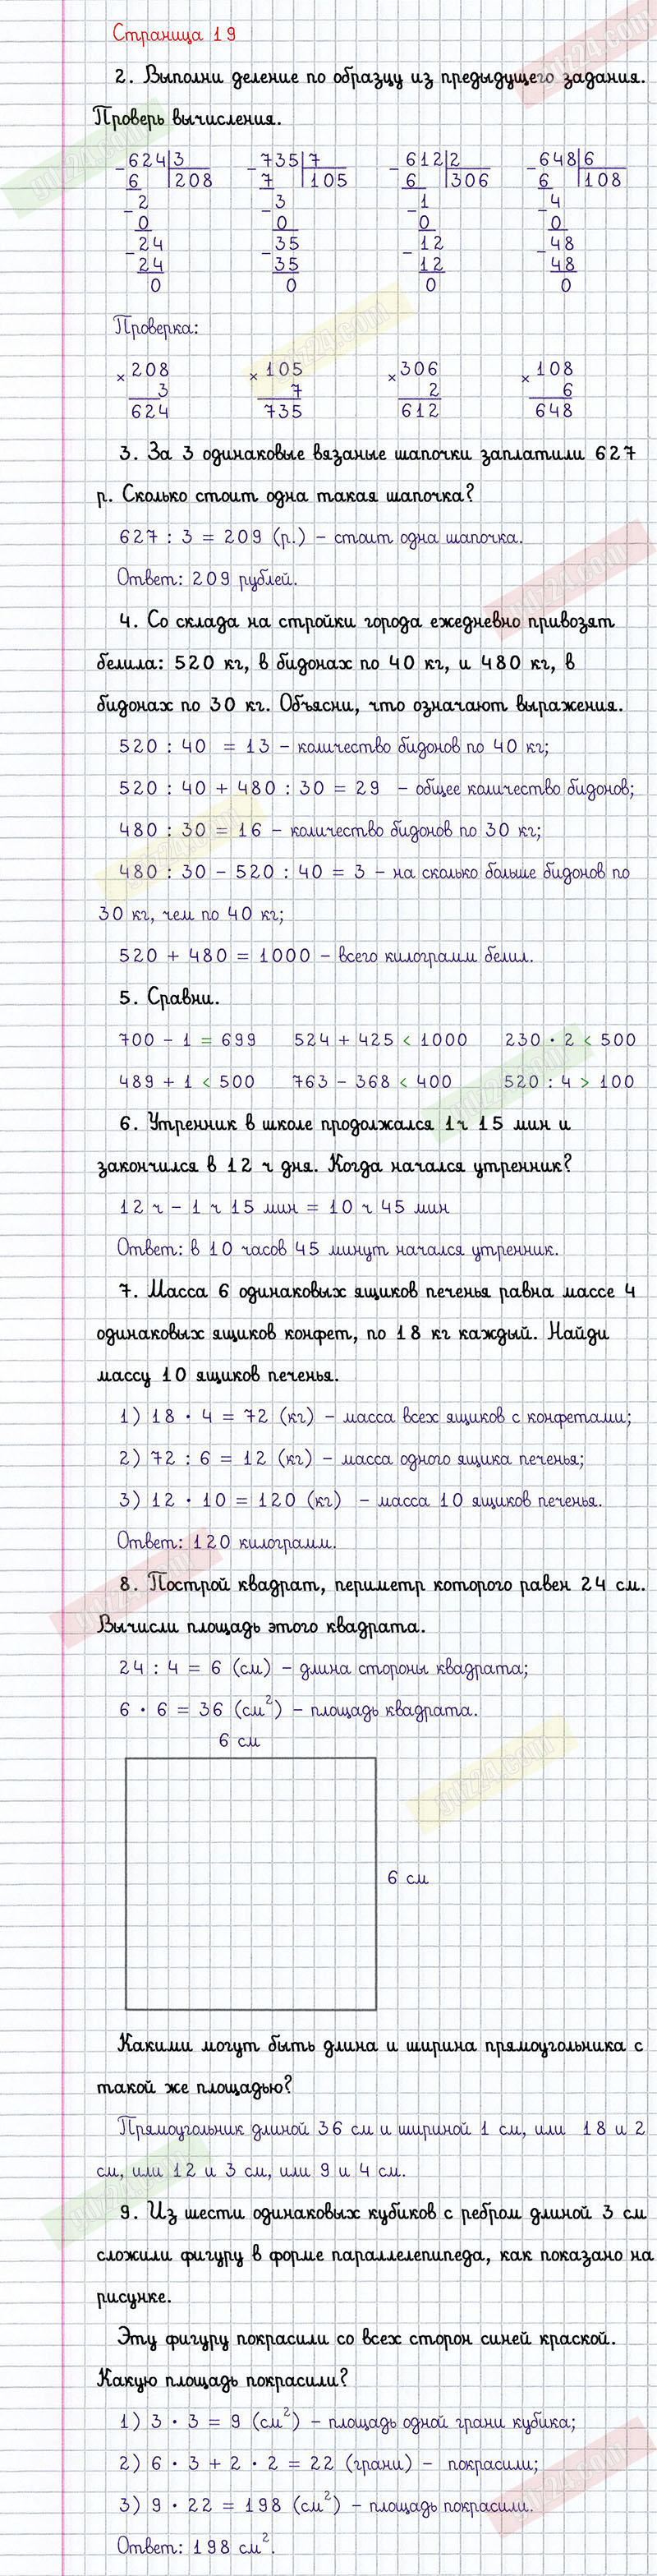 Страница 19
2. Выполни деление по образцу из предыдущего задания.
Проверь вычисления.
624 3 735 7 612 2 648 6
6 208 7 105 6 306 6 108
2 3 1 4
0 0 0 0
24 35 12 48
24 35 12 48
0 0 0 0
Проверка:
× 208 × 105 × 306 × 108
3 7 2 6
624 735 612 648
3. За 3 одинаковые вязаные шапочки заплатили 627
р. Сколько стоит одна такая шапочка?
627 : 3 = 209 (р.) – стоит одна шапочка.
Ответ: 209 рублей.
4. Со склада на стройки города ежедневно привозят
белила: 520 кг, в бидонах по 40 кг, и 480 кг, в
бидонах по 30 кг. Объясни, что означают выражения.
520 : 40 = 13 – количество бидонов по 40 кг;
520 : 40 + 480 : 30 = 29 – общее количество бидонов;
480 : 30 = 16 – количество бидонов по 30 кг;
480 : 30 – 520 : 40 = 3 – на сколько больше бидонов по
30 кг, чем по 40 кг;
520 + 480 = 1000 – всего килограмм белил.
5. Сравни.
700 – 1 = 699 524 + 425 < 1000 230 · 2 < 500
489 + 1 < 500 763 – 368 < 400 520 : 4 > 100
6. Утренник в школе продолжался 1ч 15 мин и
закончился в 12 ч дня. Когда начался утренник?
12 ч – 1 ч 15 мин = 10 ч 45 мин
Ответ: в 10 часов 45 минут начался утренник.
7. Масса 6 одинаковых ящиков печенья равна массе 4
одинаковых ящиков конфет, по 18 кг каждый. Найди
массу 10 ящиков печенья.
1) 18 · 4 = 72 (кг) – масса всех ящиков с конфетами;
2) 72 : 6 = 12 (кг) – масса одного ящика печенья;
3) 12 · 10 = 120 (кг) – масса 10 ящиков печенья.
Ответ: 120 килограмм.
8. Построй квадрат, периметр которого равен 24 см.
Вычисли площадь этого квадрата.
24 : 4 = 6 (см) – длина стороны квадрата;
6 · 6 = 36 (см²) – площадь квадрата.
6 см
6 см
Какими могут быть длина и ширина прямоугольника с
такой же площадью?
Прямоугольник длиной 36 см и шириной 1 см, или 18 и 2
см, или 12 и 3 см, или 9 и 4 см.
9. Из шести одинаковых кубиков с ребром длиной 3 см
сложили фигуру в форме параллелепипеда, как показано на
рисунке.
Эту фигуру покрасили со всех сторон синей краской.
Какую площадь покрасили?
1) 3 · 3 = 9 (см²) – площадь одной грани кубика;
2) 6 · 3 + 2 · 2 = 22 (грани) – покрасили;
3) 9 · 22 = 198 (см²) – площадь покрасили.
Ответ: 198 см².
gdz24.com
gdz24.com
gdz24.com
gdz24.com
gdz24.com
gdz24.com
gdz24.com
gdz24.com
gdz24.com
gdz24.com